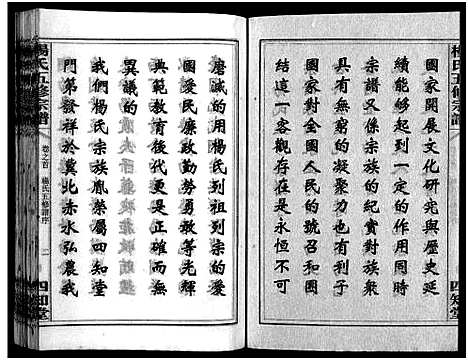 楊氏五修宗譜
四知堂
國家開展文化研究與歷史延
續能够起到一定的作用同時
宗譜又係宗族的紀實對族人
具有無窮的凝聚力也有利于
國家對全國人民的號召和團
結這一客觀存在是永恒不可
磨滅的用楊氏到祖到宗的愛
國愛民廉政勤勞勇敢等光輝
典範教育後代更是正確而無
異議的
我們楊氏宗族胤榮屬四知堂
門第發祥於冀北赤水弘農我
楊氏五修宗譜
卷之首
楊氏五修譜序
二
四知堂